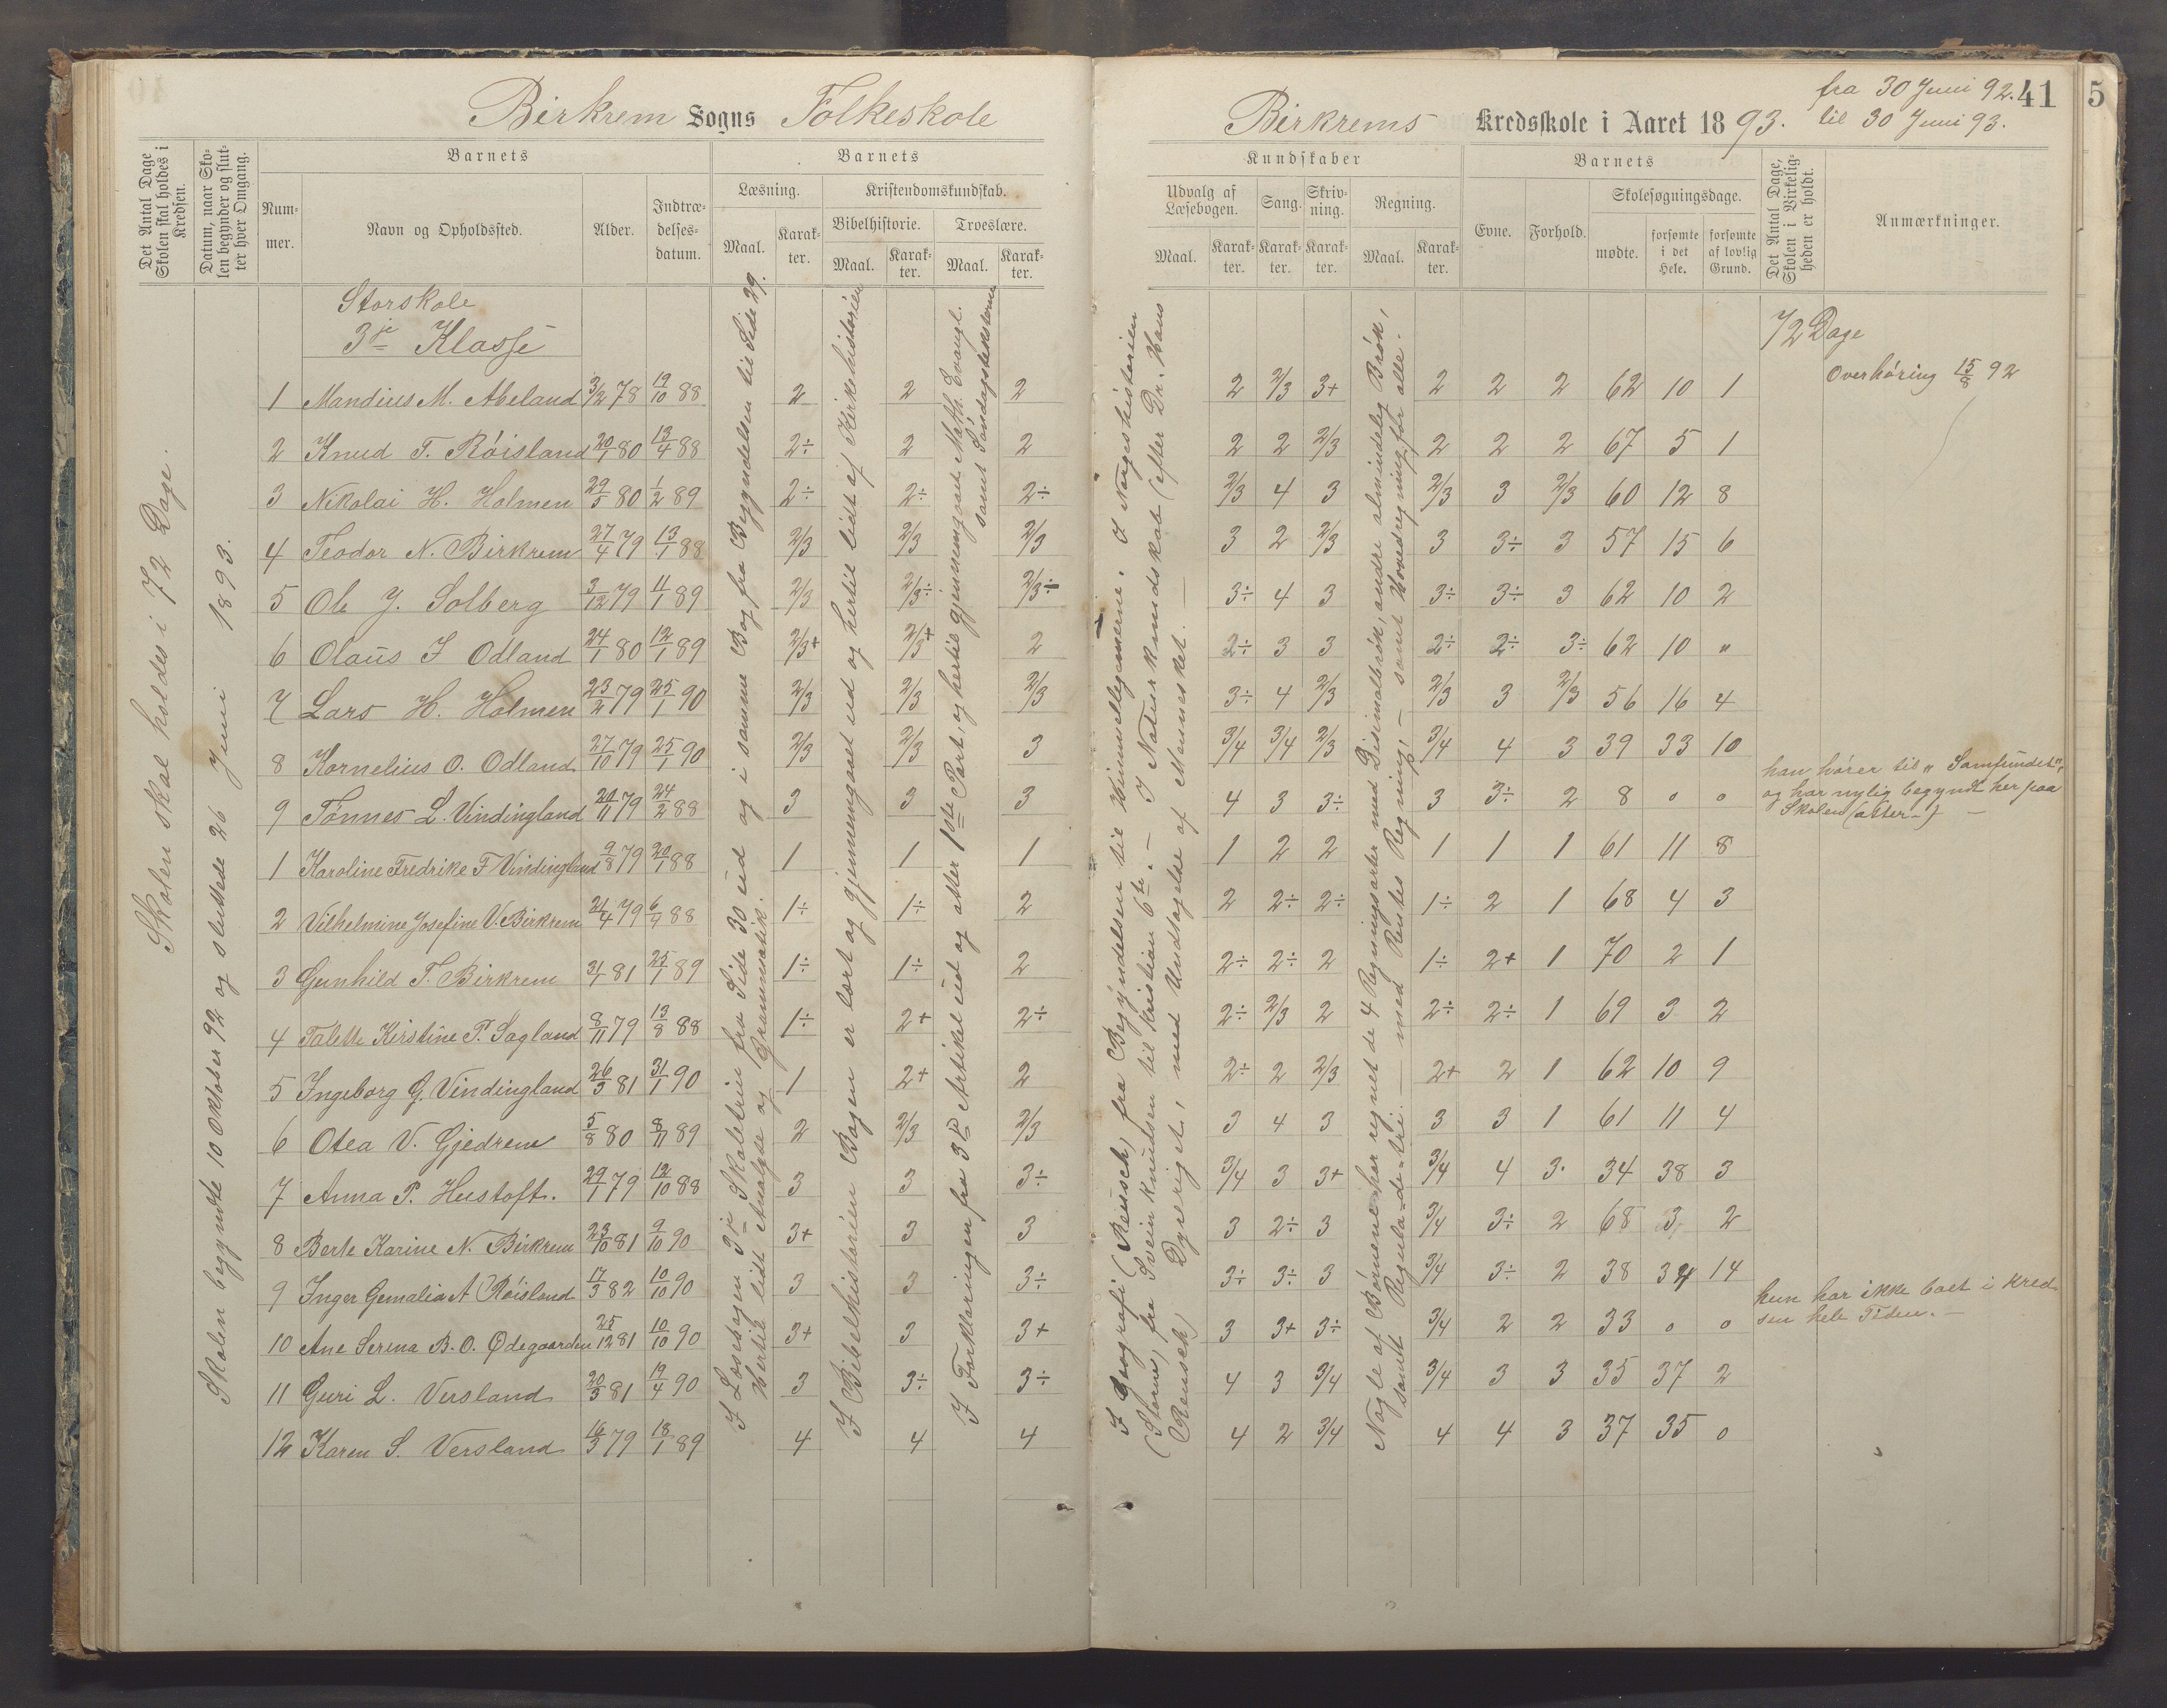 Birkrem Sogns Folkeskole
Det Antal Dage Skolen skal holdes i Kredsen.
Datum, naar Skolen begynder og slutter hver Omgang.
Barnets
Nummer.
Navn og Opholdssted.
Alder.
Indtrædelsesdatum.
Barnets
Læsning.
Maal.
Karakter.
Kristendomskundskab.
Bibelhistorie.
Maal.
Karakter.
Troeslære.
Maal.
Karakter.
Skolen skal holdes i 72 Dage.
Skolen begyndte 10 Oktober 92 og sluttede 26 Juni 1893.
Storskole
3je Klasse
1 Mandius M. Abeland 3/12 78 19/10 88 2 2 2
2 Knud T. Röisland 20/1 80 13/4 88 2÷ 2 2
3 Nikolai H. Holmen 29/5 80 1/2 89 2÷ 2÷ 2÷
4 Teodor N. Birkrem 27/4 79 13/1 88 2/3 2/3 2/3
5 Ole J. Solberg 3/12 79 11/1 89 2/3 2/3÷ 2/3÷
6 Olaus I Odland 24/1 80 12/1 89 2/3+ 2/3+ 2
7 Lars H. Holmen 23/2 79 25/1 90 2/3 2/3 2/3
8 Kornelius O. Odland 27/10 79 25/1 90 2/3 2/3 3
9 Tønnes L. Vindingland 21/11 79 24/2 88 3 3 3
1 Karoline Fredrike F Vindingland 9/8 79 20/1 88 1 1 1
2 Vilhelmine Josefine V. Birkrem 21/4 79 6/9 88 1÷ 1÷ 2
3 Gunhild T. Birkrem 3/1 81 25/1 89 1÷ 1÷ 2
4 Talette Kirstine P. Sagland 8/11 79 13/8 88 1÷ 2+ 2÷
5 Ingeborg G. Vindingland 26/3 81 31/1 90 1 2+ 2
6 Otea V. Gjedrem 5/8 80 8/11 89 2 2/3 2/3
7 Anna P. Hustoft. 29/1 79 12/10 88 3 3 3÷
8 Berte Karine N. Birkrem 23/10 81 9/10 90 3+ 3 3
9 Inger Gemalia A Röisland 17/3 82 10/10 90 3 3 3÷
10 Ane Serina B. O. Ødegaarden 25/12 81 10/10 90 3+ 3 3+
11 Guri L. Versland 20/3 81 19/4 90 3 3÷ 3÷
12 Karen S. Versland 16/3 79 18/1 89 4 4 4
I Læsebogen 3je Skoletrin fra Side 30 ud og i samme Bog fra Begyndelsen til Side 29.
Hertil lidt Analyse og Grammatik.
I Bibelhistorien Bogen er lært og gjennemgaaet ud og hertil lidt af Kirkehistorien
I Forklaringen fra 3die Artikel ud og atter 1ste Part, og hertil gjennemgaaet Math. Evangl.
samt Søndagsteksterne
Birkrems Kredsskole i Aaret 1893.
fra 30 Juni 92.
til 30 Juni 93.
41
5
Kundskaber
Udvalg af Læsebogen.
Maal.
Karakter.
Sang.
Karakter.
Skrivning.
Karakter.
Regning.
Maal.
Karakter.
Barnets
Evne.
Forhold.
Skolesøgningsdage.
mødte.
forsømte i det Hele.
forsømte af lovlig Grund.
Det Antal Dage, Skolen i Virkeligheden er holdt.
Anmærkninger.
I Geografi (Reusch) fra Begyndelsen til Himmellegemerne. I Norgeshistorien
(Storm) fra Svein Knudsen til Kristian 6te. — I Naturkundskab (efter Dr. Hans
Reusch) Dyreriget, med Undtagelse af Mennesket. —
Nogle af Børnene har regnet de 4 Regningsarter med Disimalbrök, andre almindelig Brök,
samt Regula-de-tri. — med Rentes Regning, — samt Hovedregning for alle.
72 Dage
Overhöring 15/8 92
2 2/3 3+ 2 2 2 62 10 1
2 2 2/3 2 2 2 67 5 1
2/3 4 3 2/3 3 2/3 60 12 8
3 2 2/3 3 3÷ 3 57 15 6
3÷ 4 3 3÷ 3÷ 3 62 10 2
2÷ 3 3 2÷ 2÷ 3÷ 62 10 "
3÷ 4 2/3 2/3 3 2/3 56 16 4
3/4 3/4 2/3 3/4 4 3 39 33 10
4 3 3÷ 3 3÷ 2 8 0 0
han hører til "Samfundet",
og har nylig begyndt her paa
Skolen (atter-) —
1 2 2 1 1 1 61 11 8
2 2÷ 2÷ 1÷ 2 1 68 4 3
2÷ 2÷ 2 1÷ 2+ 1 70 2 1
2÷ 2/3 2 2÷ 2÷ 1 69 3 2
2÷ 2 2/3 2+ 2 1 62 10 9
3 4 3 3 3 1 61 11 4
3/4 3 3+ 3/4 4 3 34 38 3
3 2÷ 3 3/4 3÷ 2 68 3 2
3÷ 3÷ 3 3/4 3÷ 2 38 34 14
3 3+ 3÷ 3/4 2 2 33 0 0
hun har ikke boet i Kred-
sen hele Tiden. —
4 3 3/4 3/4 3 3 35 37 2
4 2 3/4 4 4 3 37 35 0